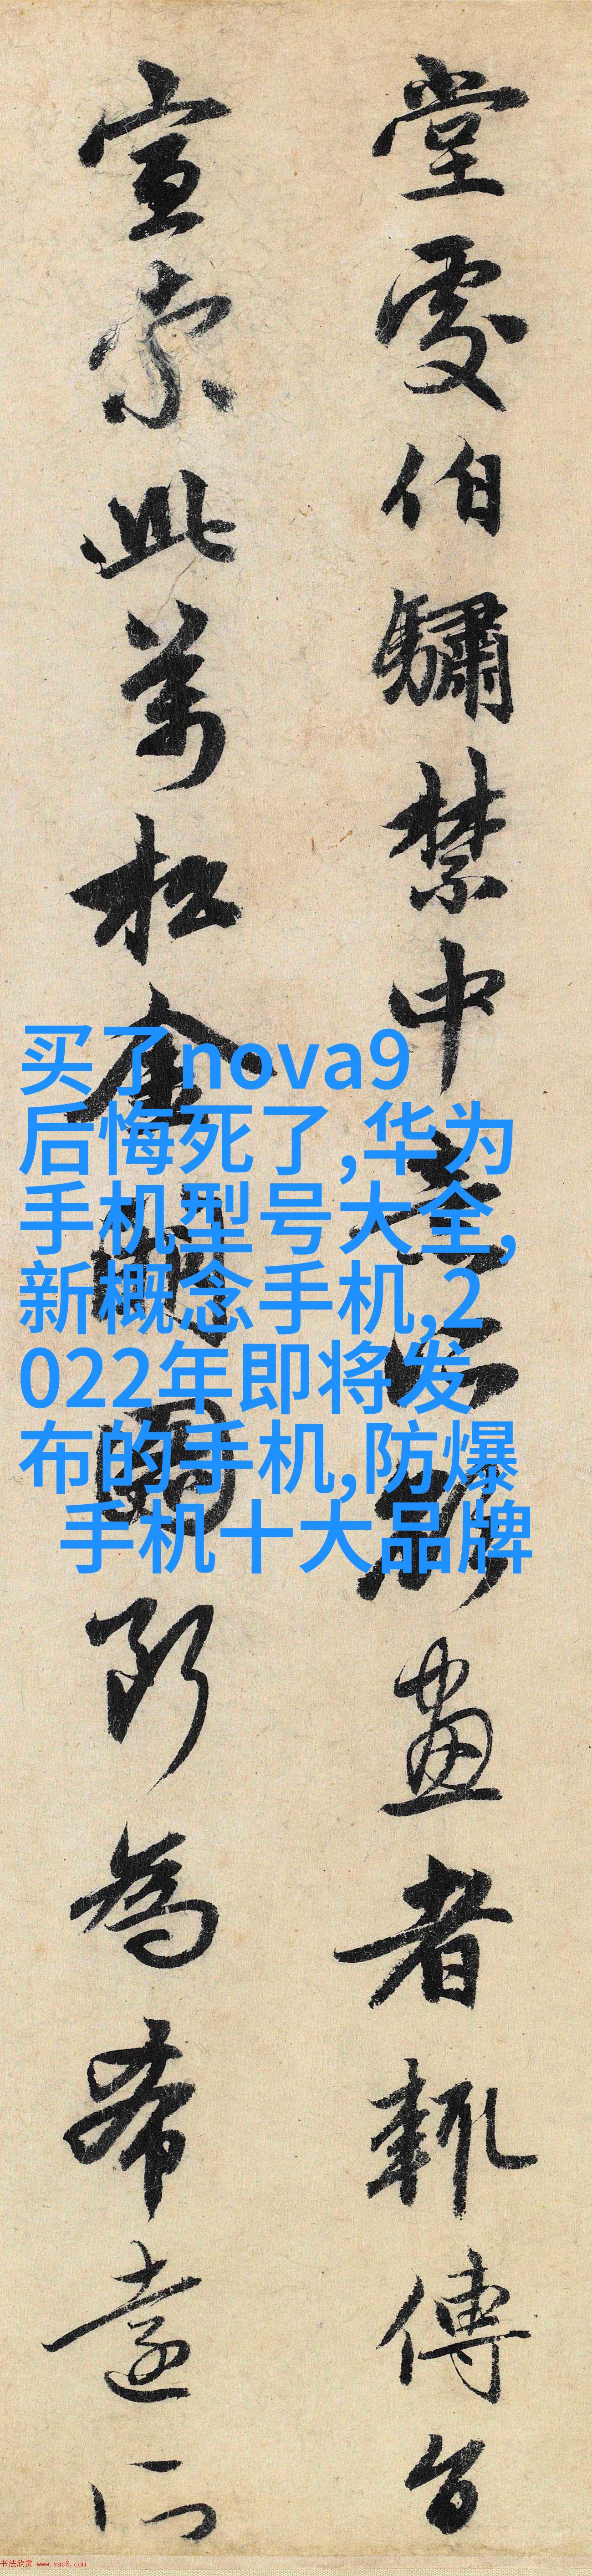 堂處伯驌禁中
畫者輒傳台
宣索此萬松金
所為希遠
买了nova9
后悔死了,华为
手机型号大全,
新概念手机,2
022年即将发
布的手机,防爆
手机十大品牌
书法欣赏 www.yac8.com